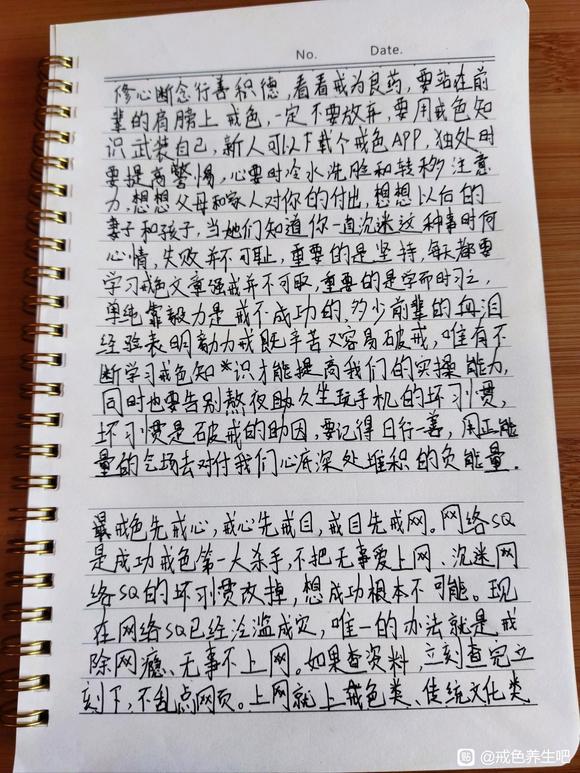 No. Date.
修心断念行善积德，看看戒为良药，要站在前
辈的肩膀上戒色，一定不要放弃，要用戒色知
识武装自己，新人可以下载个戒色APP，独处时
要提高警惕，心要时冷水洗脸和转移注意
力，想想父母和家人对你的付出，想想以后的
妻子和孩子，当她们知道你一直沉迷这种事时何
心情，失败并不可耻，重要的是坚持，每天都要
学习戒色文章强戒并不可取，重要的是学而时习之，
单纯靠毅力是戒不成功的，多少前辈的血泪
经验表明，毅力戒既辛苦又容易破戒，唯有不
断学习戒色知*识才能提高我们的实操能力，
同时也要告别熬夜久坐玩手机的坏习惯，
坏习惯是破戒的助因，要记得日行一善，用正能
量的气场去对付我们心底深处堆积的负能量．
戒色先戒心，戒心先戒目，戒目先戒网。网络SQ
是成功戒色第一大杀手，不把无事爱上网、沉迷网
络SQ的坏习惯改掉，想成功根本不可能。现
在网络SQ已经泛滥成灾，唯一的办法就是戒
除网瘾、无事不上网。如果查资料，立刻查完立
刻下，不乱点网页。上网就上戒色类、传统文化类
贴 @戒色养生吧